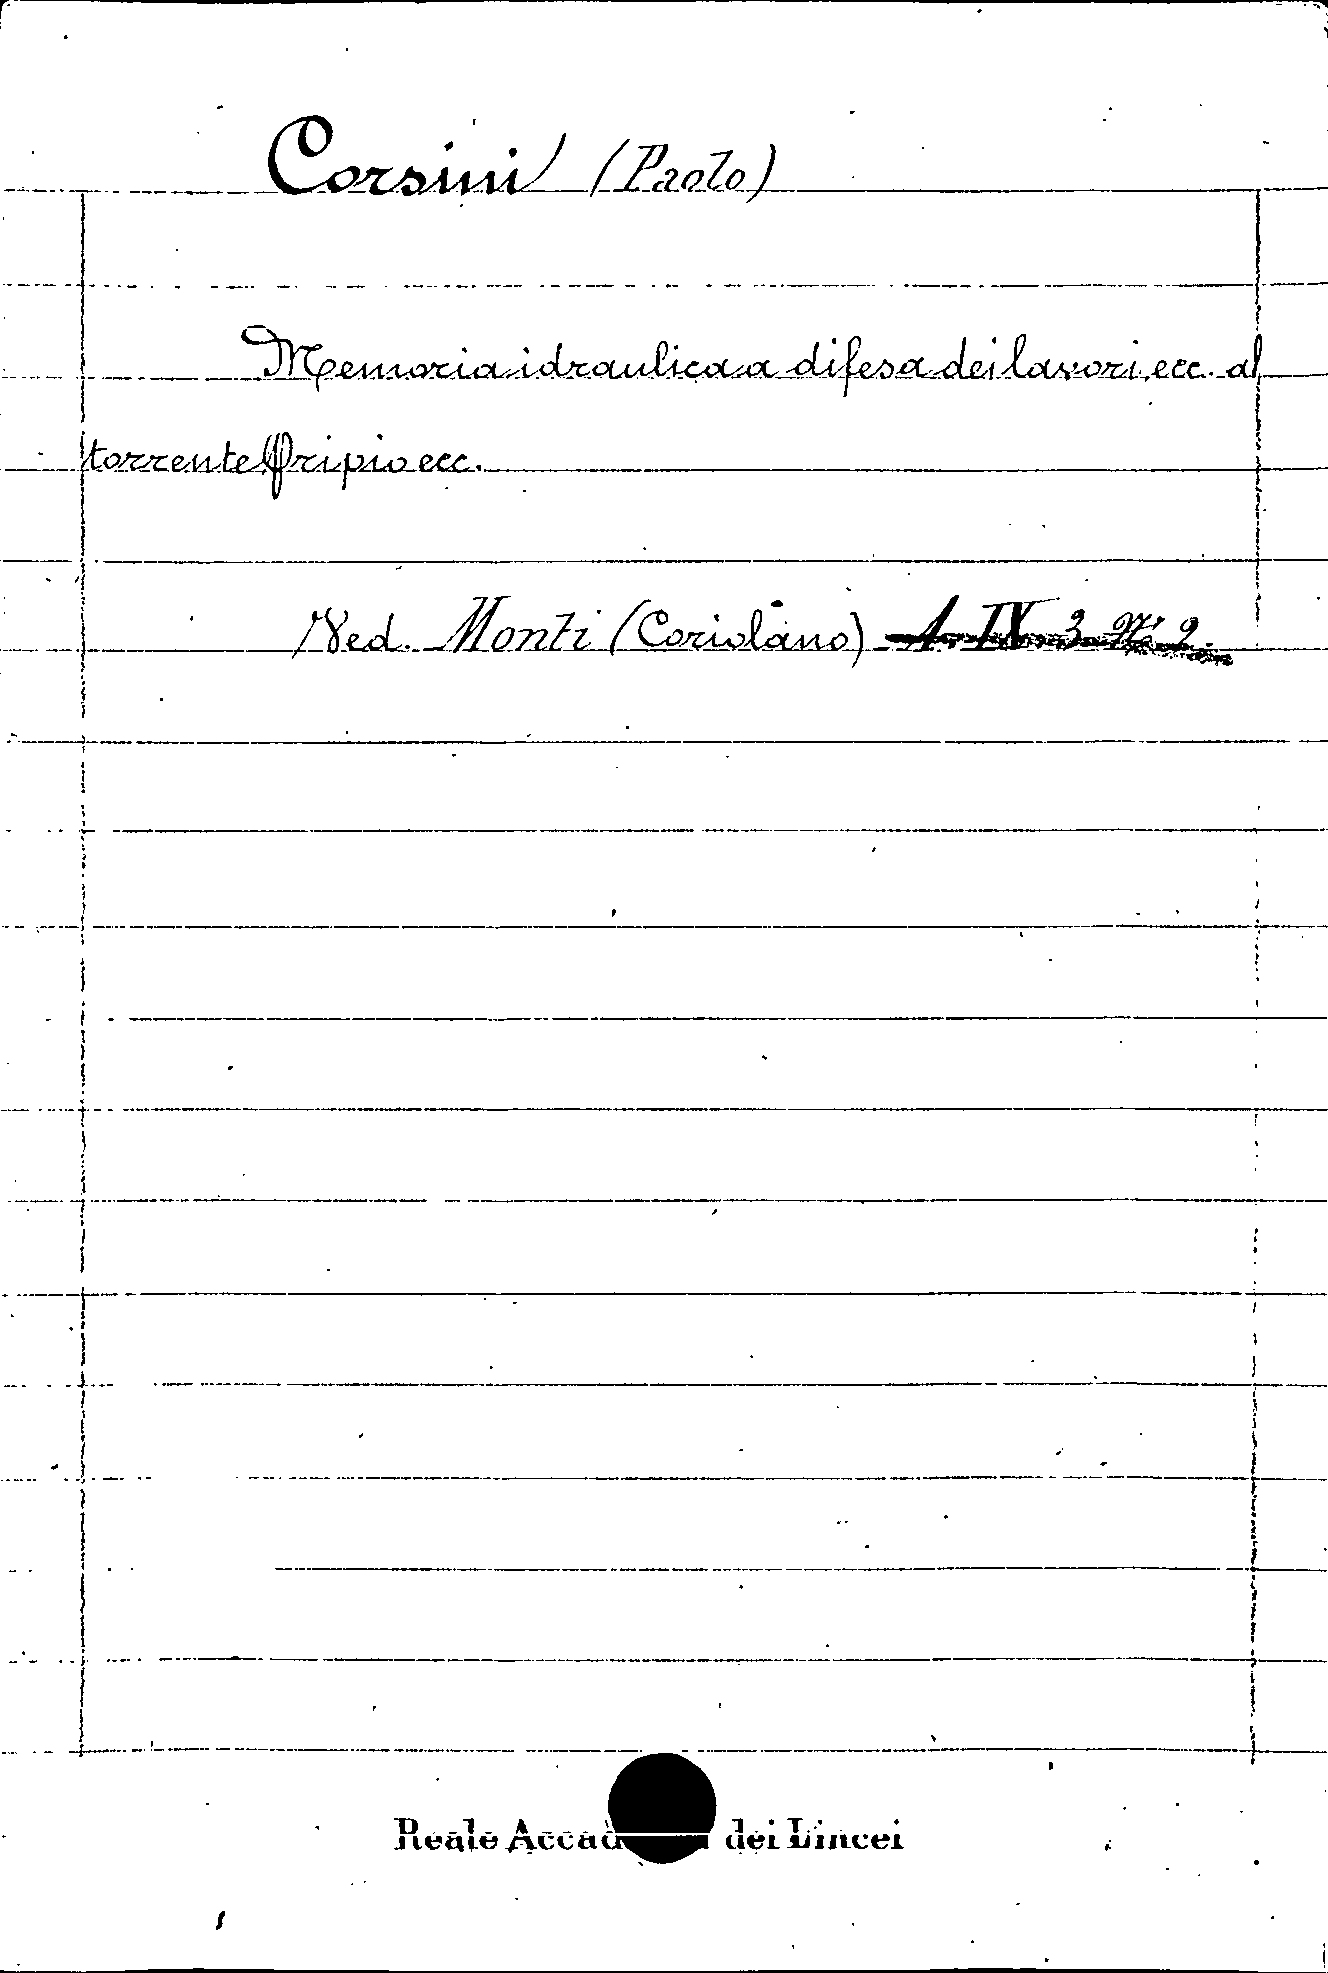 Corsini (Paolo)
Memoria idraulica a difesa dei lavori, ecc. al
torrente ecc.
Ved. Monti (Coriolano) 1. IX 3 N° 2.
Reale Accad dei Lincei